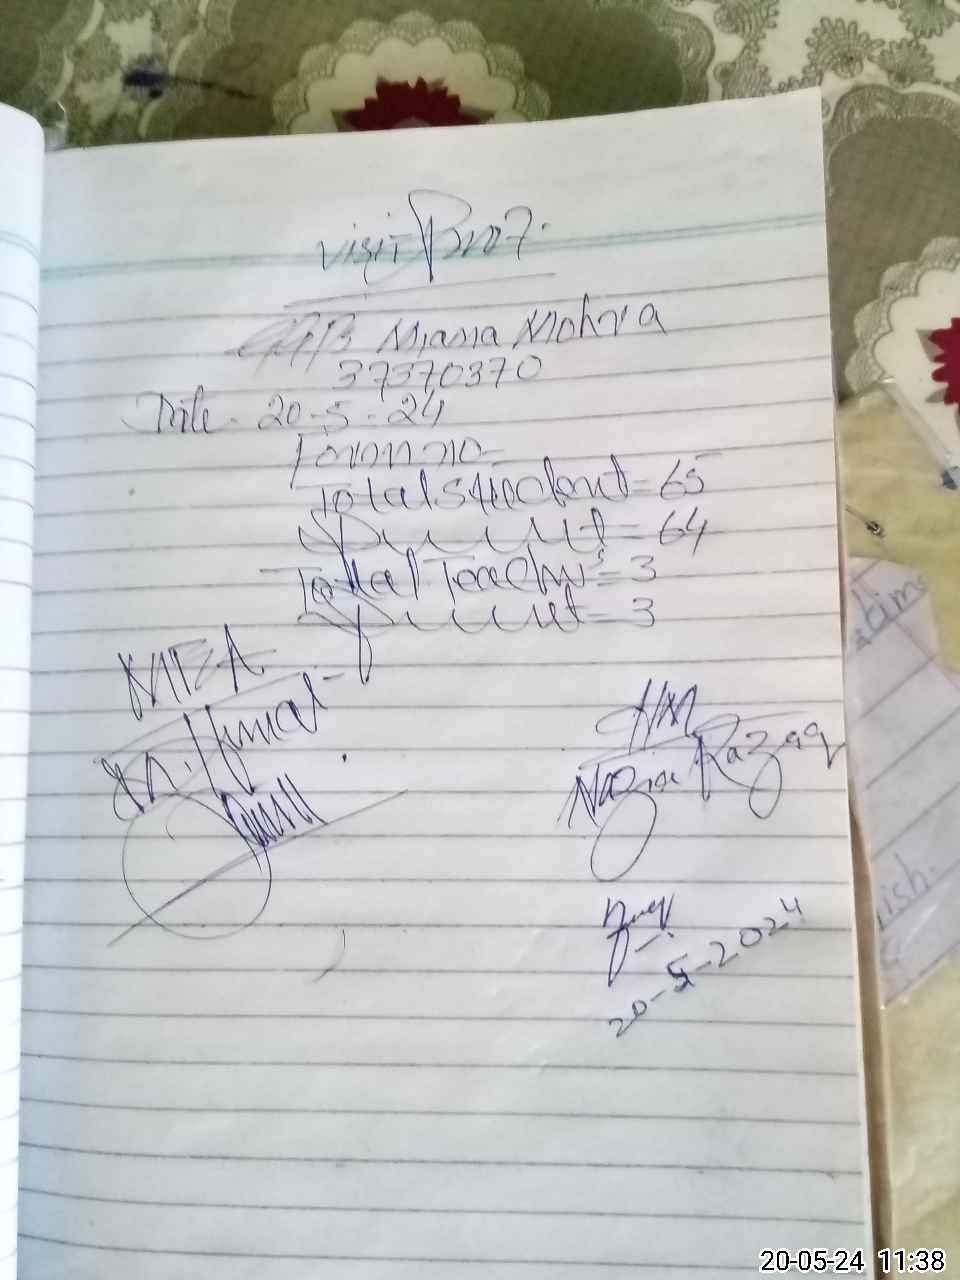 Visit Proof.
Miana Mohra
37370370
Date - 20-5-24
Total Student = 65
Present = 64
Total Teacher's = 3
Present = 3
MEA
HM
Nazia Razaq
20-5-2024
time
ish.
20-05-24 11:38